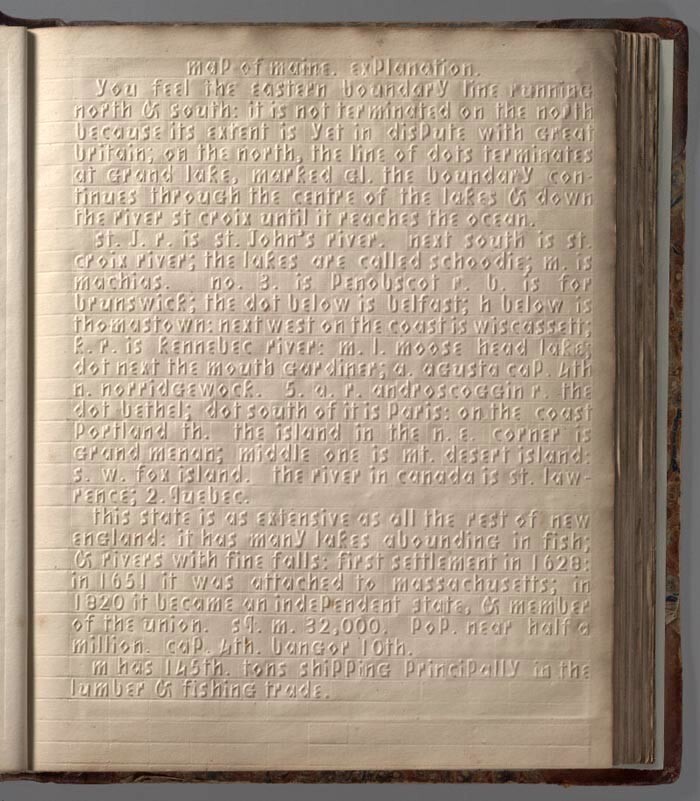 map of maine. explanation.
You feel the eastern boundary line running
north & south: it is not terminated on the north
because its extent is yet in dispute with great
britain; on the north, the line of dots terminates
at grand lake, marked gl. the boundary con-
tinues through the centre of the lakes & down
the river st croix until it reaches the ocean.
st. J. r. is st. John's river. next south is st.
croix river; the lakes are called schoodie; m. is
machias. no. 3. is penobscot r. b. is for
brunswick; the dot below is belfast; h below is
thomastown: next west on the coast is wiscassett;
k. r. is kennebec river: m. l. moose head lake;
dot next the mouth gardiner; a. agusta cap. 4th
n. norridgewock. 5. a. r. androscoggin r. the
dot bethel; dot south of it is paris: on the coast
portland th. the island in the n. e. corner is
grand menan; middle one is mt. desert island:
s. w. fox island. the river in canada is st. law-
rence; 2. quebec.
this state is as extensive as all the rest of new
england: it has many lakes abounding in fish;
& rivers with fine falls: first settlement in 1628:
in 1651 it was attached to massachusetts; in
1820 it became an independent state, & member
of the union. sq. m. 32,000. pop. near half a
million. cap. 4th. bangor 10th.
m has 145th. tons shipping principally in the
lumber & fishing trade.